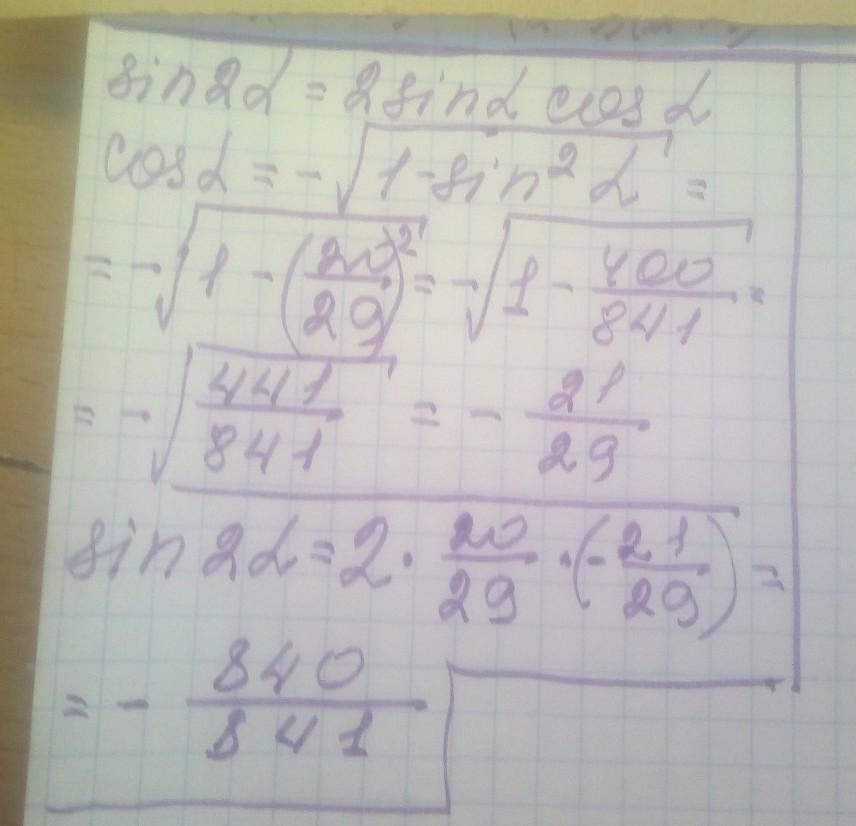 sin2α = 2sinα cosα
cosα = -√(1-sin²α) =
= -√(1 - (20/29)²) = -√(1 - 400/841) =
= -√(441/841) = - 21/29
sin2α = 2 · 20/29 · (-21/29) =
= - 840/841